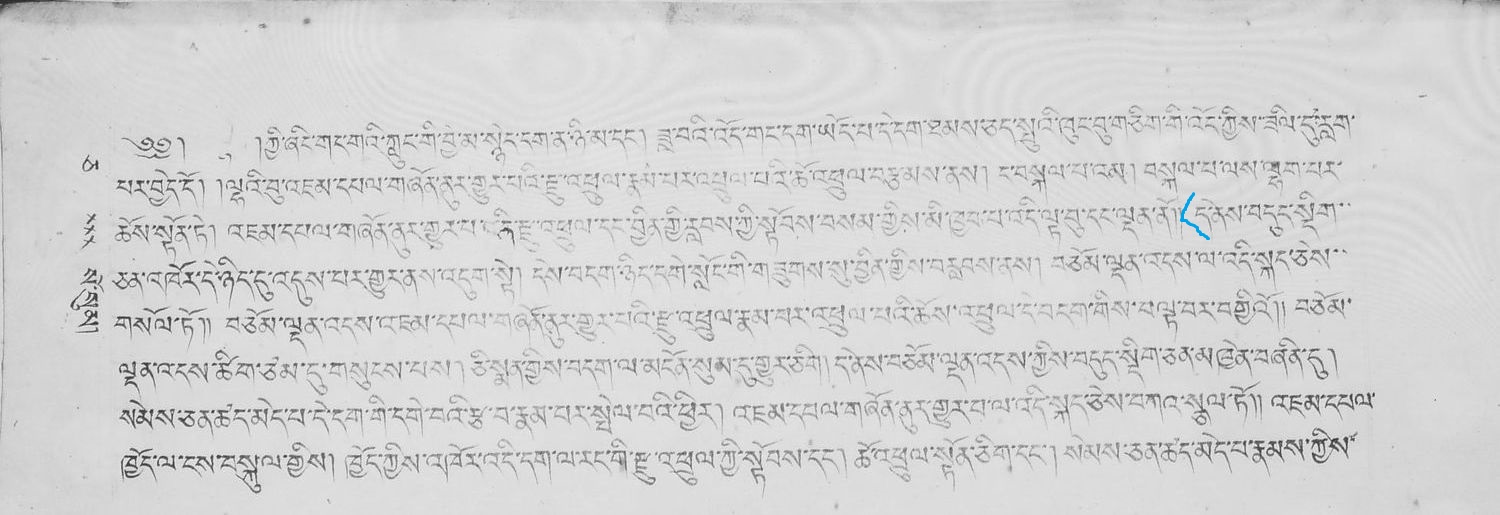 ༄༅། །ཀྱི་ཞིང་གང་གཱའི་ཀླུང་གི་བྱེ་མ་སྙེད་དག་ན་ཉི་མ་དང༌། ཟླ་བའི་འོད་གང་དག་ཡོད་པ་དེ་དག་ཐམས་ཅད་སྤུའི་ཁུང་བུ་གཅིག་གི་འོད་ཀྱིས་ཟིལ་དུ་རླག་
པར་བྱེད་དོ། །ལྷའི་བུ་འཇམ་དཔལ་གཞོན་ནུར་གྱུར་པའི་རྫུ་འཕྲུལ་རྣམ་པར་འཕྲུལ་པའི་ཆོ་འཕྲུལ་བརྩམས་ནས། ང་བསྐལ་པ་འམ། བསྐལ་པ་ལས་ལྷག་པར་
ཆོས་སྟོན་ཏེ། འཇམ་དཔལ་གཞོན་ནུར་གྱུར་པ་ནི་རྫུ་འཕྲུལ་དང་བྱིན་གྱི་རླབས་ཀྱི་སྟོབས་བསམ་གྱིས་མི་ཁྱབ་པ་འདི་ལྟ་བུ་དང་ལྡན་ནོ། །དེ་ནས་བདུད་སྡིག་
ཅན་འཁོར་དེ་ཉིད་དུ་འདུས་པར་གྱུར་ནས་འདུག་སྟེ། དེས་བདག་ཉིད་དགེ་སློང་གི་གཟུགས་སུ་བྱིན་གྱིས་བརླབས་ནས། བཅོམ་ལྡན་འདས་ལ་འདི་སྐད་ཅེས་
གསོལ་ཏོ།། བཅོམ་ལྡན་འདས་འཇམ་དཔལ་གཞོན་ནུར་གྱུར་པའི་རྫུ་འཕྲུལ་རྣམ་པར་འཕྲུལ་པའི་ཆོས་འཕྲུལ་དེ་བདག་གིས་བལྟ་བར་བགྱིའོ།། བཅོམ་
ལྡན་འདས་ཚིག་ཙམ་དུ་གསུངས་པས། ཅི་སྨན་གྱིས་བདག་ལ་མངོན་སུམ་དུ་གྱུར་ཅིག། དེ་ནས་བཅོམ་ལྡན་འདས་ཀྱིས་བདུད་སྡིག་ཅན་མཁྱེན་བཞིན་དུ།
སེམས་ཅན་ཚད་མེད་པ་དེ་དག་གི་དགེ་བའི་རྩ་བ་རྣམ་པར་སྤེལ་བའི་ཕྱིར། འཇམ་དཔལ་གཞོན་ནུར་གྱུར་པ་ལ་འདི་སྐད་ཅེས་བཀའ་སྩལ་ཏོ།། འཇམ་དཔལ་
ཁྱོད་ལ་ངས་བསྐུལ་གྱིས། ཁྱོད་ཀྱིས་འཁོར་འདི་དག་ལ་རང་གི་རྫུ་འཕྲུལ་ཀྱི་སྟོབས་དང༌། ཆོ་འཕྲུལ་སྟོན་ཅིག་དང༌། སེམས་ཅན་ཚད་མེད་པ་རྣམས་ཀྱིས་